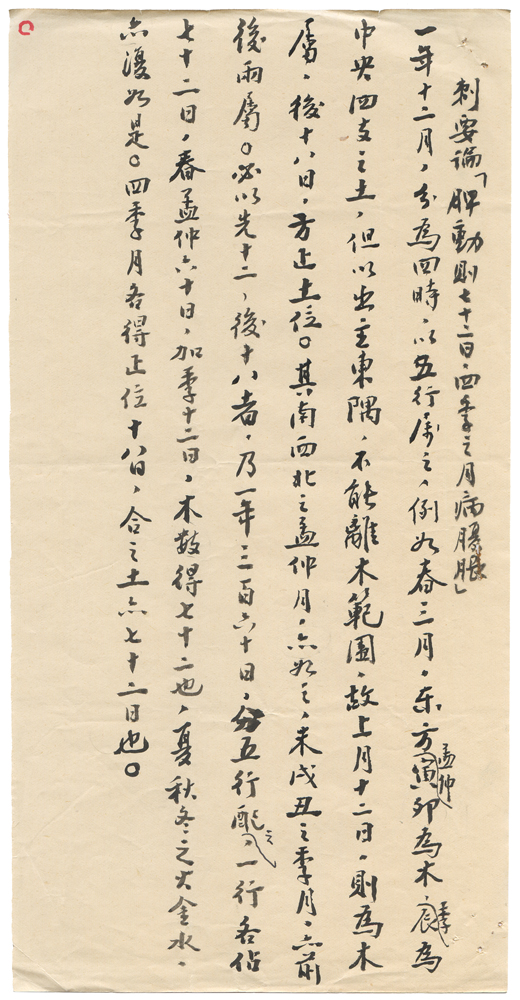 刺要論「脾動則七十二日四季之月病腹脹」
一年十二月，分為四時，以五行屬之，例如春三月，東方孟仲寅卯為木，季辰為
中央四支之土，但以出主東隅，不能離木範圍，故上月十二日，則為木
屬，後十八日，方正土位。其南西北之孟仲月，亦如之，未戌丑之季月，亦前
後兩屬。必以先十二，後十八者，乃一年三百六十日，分五行配之，一行各佔
七十二日，春孟仲六十日，加季十二日，木數得七十二也，夏秋冬之火金水，
亦復如是。四季月各得正位十八日，合之土亦七十二日也。